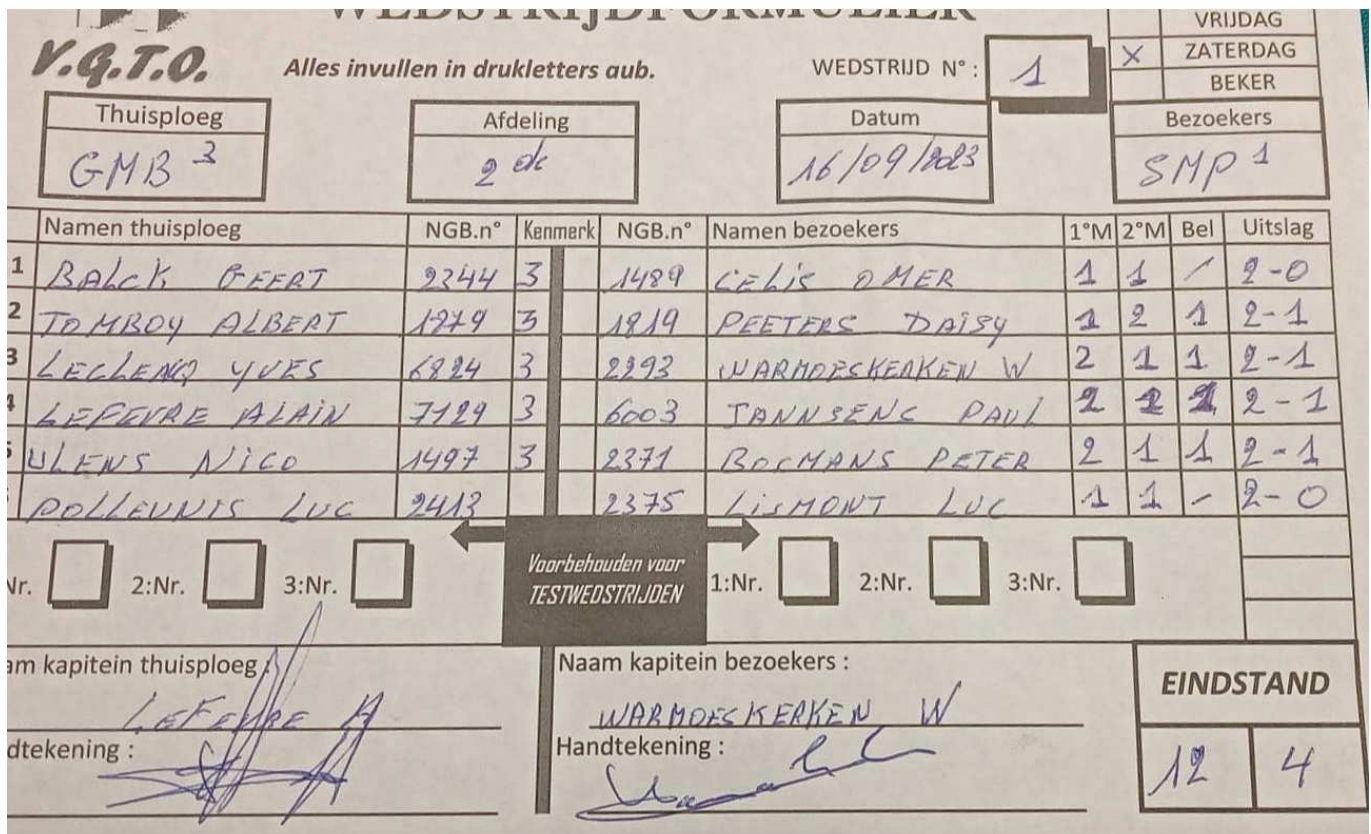 WEDSTRIJDFORMULIER
VRIJDAG
X ZATERDAG
BEKER
V.G.T.O.
Alles invullen in drukletters aub.
WEDSTRIJD N° : 1
Thuisploeg Afdeling Datum Bezoekers
GMB 3 2 de 16/09/2023 SMP 1
Namen thuisploeg NGB.n° Kenmerk NGB.n° Namen bezoekers 1°M 2°M Bel Uitslag
1 BALCK GEERT 2344 3 1489 CELIS OMER 1 1 / 2-0
2 TOMBOY ALBERT 1279 3 1819 PEETERS DAISY 1 2 1 2-1
3 LECLERCQ YVES 6824 3 2293 WARMOESKERKEN W 2 1 1 2-1
4 LEFEVRE ALAIN 7129 3 6003 JANNSENS PAUL 2 1 2-1
5 ULENS NICO 1497 3 2371 BOCMANS PETER 2 1 1 2-1
POLLEUNIS LUC 2413 2375 LISMONT LUC 1 1 - 2-0
Nr. 2:Nr. 3:Nr.
Voorbehouden voor
TESTWEDSTRIJDEN
1:Nr. 2:Nr. 3:Nr.
am kapitein thuisploeg :
LEFEVRE A
dtekening :
Naam kapitein bezoekers :
WARMOESKERKEN W
Handtekening :
EINDSTAND
12 4